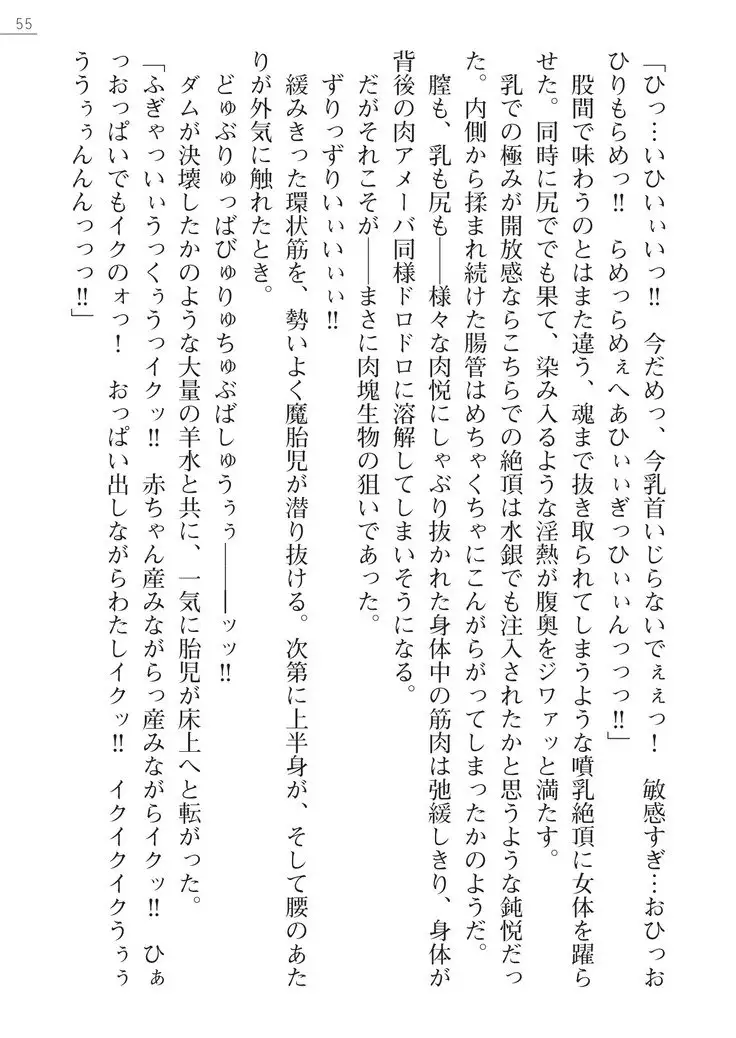 55
「ひっ…いひいぃいっ!! 今だめっ、今乳首いじらないでぇぇっ! 敏感すぎ…おひっお
ひりもらめっ!! らめっらめぇへあひぃぃぎっひぃぃんっっっ!!」
股間で味わうのとはまた違う、魂まで抜き取られてしまうような噴乳絶頂に女体を躍ら
せた。同時に尻ででも果て、染み入るような淫熱が腹奥をジワァッと満たす。
乳での極みが開放感ならこちらでの絶頂は水銀でも注入されたかと思うような鈍悦だっ
た。内側から揉まれ続けた腸管はめちゃくちゃにこんがらがってしまったかのようだ。
膣も、乳も尻も――様々な肉悦にしゃぶり抜かれた身体中の筋肉は弛緩しきり、身体が
背後の肉アメーバ同様ドロドロに溶解してしまいそうになる。
だがそれこそが――まさに肉塊生物の狙いであった。
ずりっずりいぃいぃいぃ!!
緩みきった環状筋を、勢いよく魔胎児が潜り抜ける。次第に上半身が、そして腰のあた
りが外気に触れたとき。
どゅぶりゅっばびゅりゅちゅぶばしゅうぅぅ―――ッッ!!
ダムが決壊したかのような大量の羊水と共に、一気に胎児が床上へと転がった。
「ふぎゃっいぃうっくぅうっイクッ!! 赤ちゃん産みながらっ産みながらイクッ!! ひぁ
っおっぱいでもイクのォっ! おっぱい出しながらわたしイクッ!! イクイクイクうぅぅ
ううぅぅんんんっっっ!!」